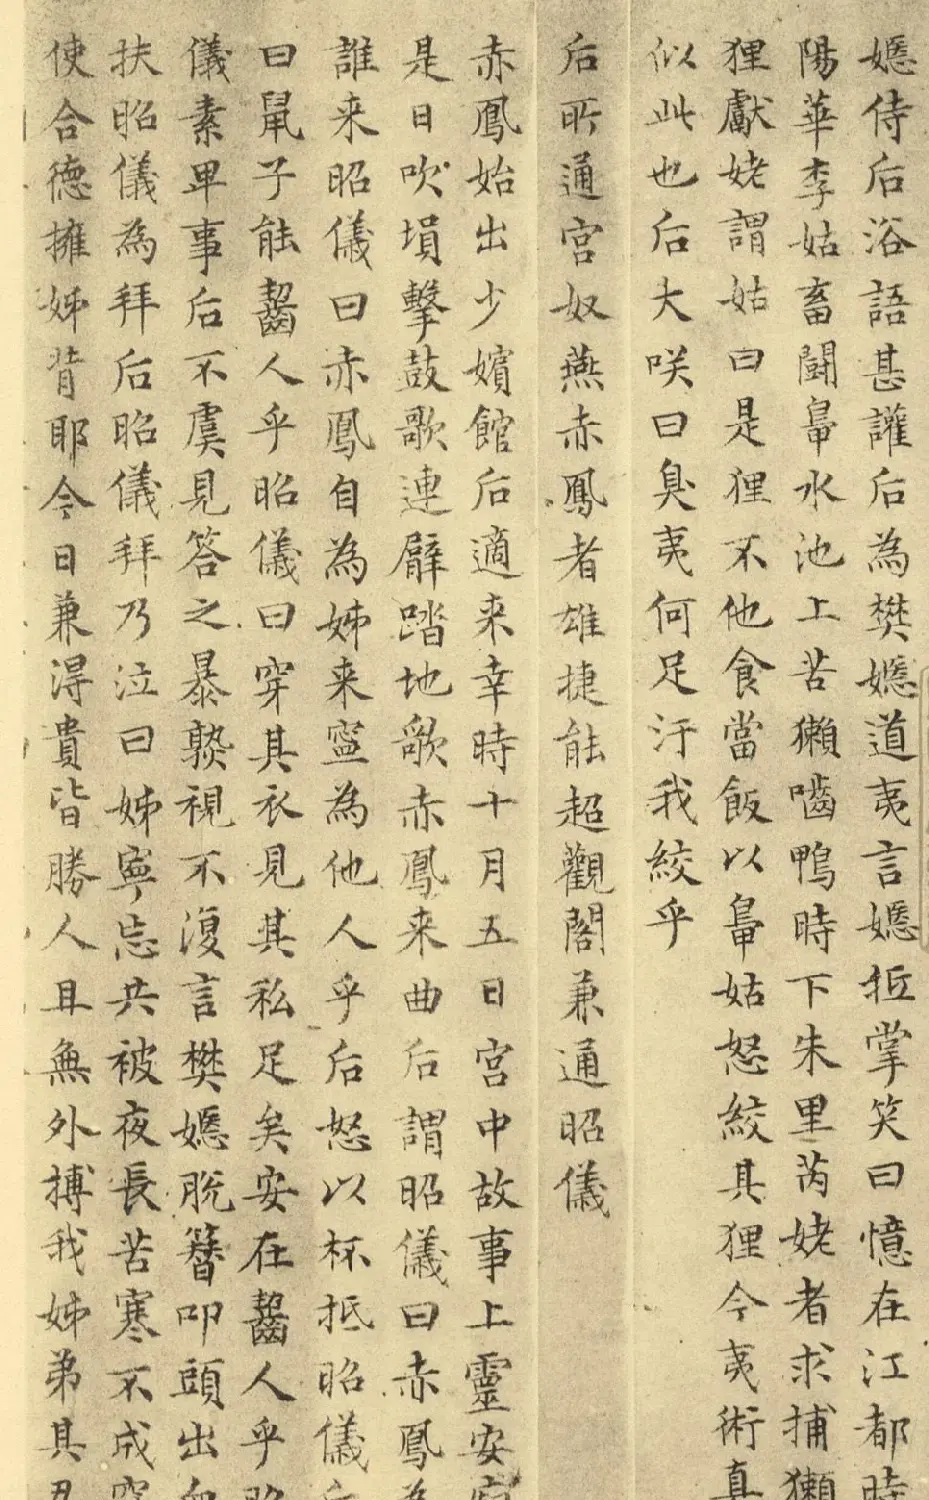 嬺侍后浴語甚讙后為樊嬺道夷言嬺抵掌笑曰憶在江都時
陽華李姑畜鬪鼻水池上苦獺嚙鴨時下朱里芮姥者求捕獺
狸獻姥謂姑曰是狸不他食當飯以鼻姑怒絞其狸今夷術真
似此也后大咲曰臭夷何足汙我絞乎
后所通宮奴燕赤鳳者雄捷能超觀閣兼通昭儀
赤鳳始出少嬪館后適来幸時十月五日宮中故事上靈安
是日吹塤擊鼓歌連臂踏地歌赤鳳来曲后謂昭儀曰赤鳳為
誰来昭儀曰赤鳳自為姊来寧為他人乎后怒以杯抵昭儀
曰鼠子能齧人乎昭儀曰穿其衣見其私足矣安在齧人乎昭
儀素卑事后不虞見答之暴孰視不復言樊嬺脫簪叩頭出血
扶昭儀為拜后昭儀拜乃泣曰姊寧忘共被夜長苦寒不成
使合德擁姊背耶今日兼淂貴皆勝人且無外搏我姊弟其忍